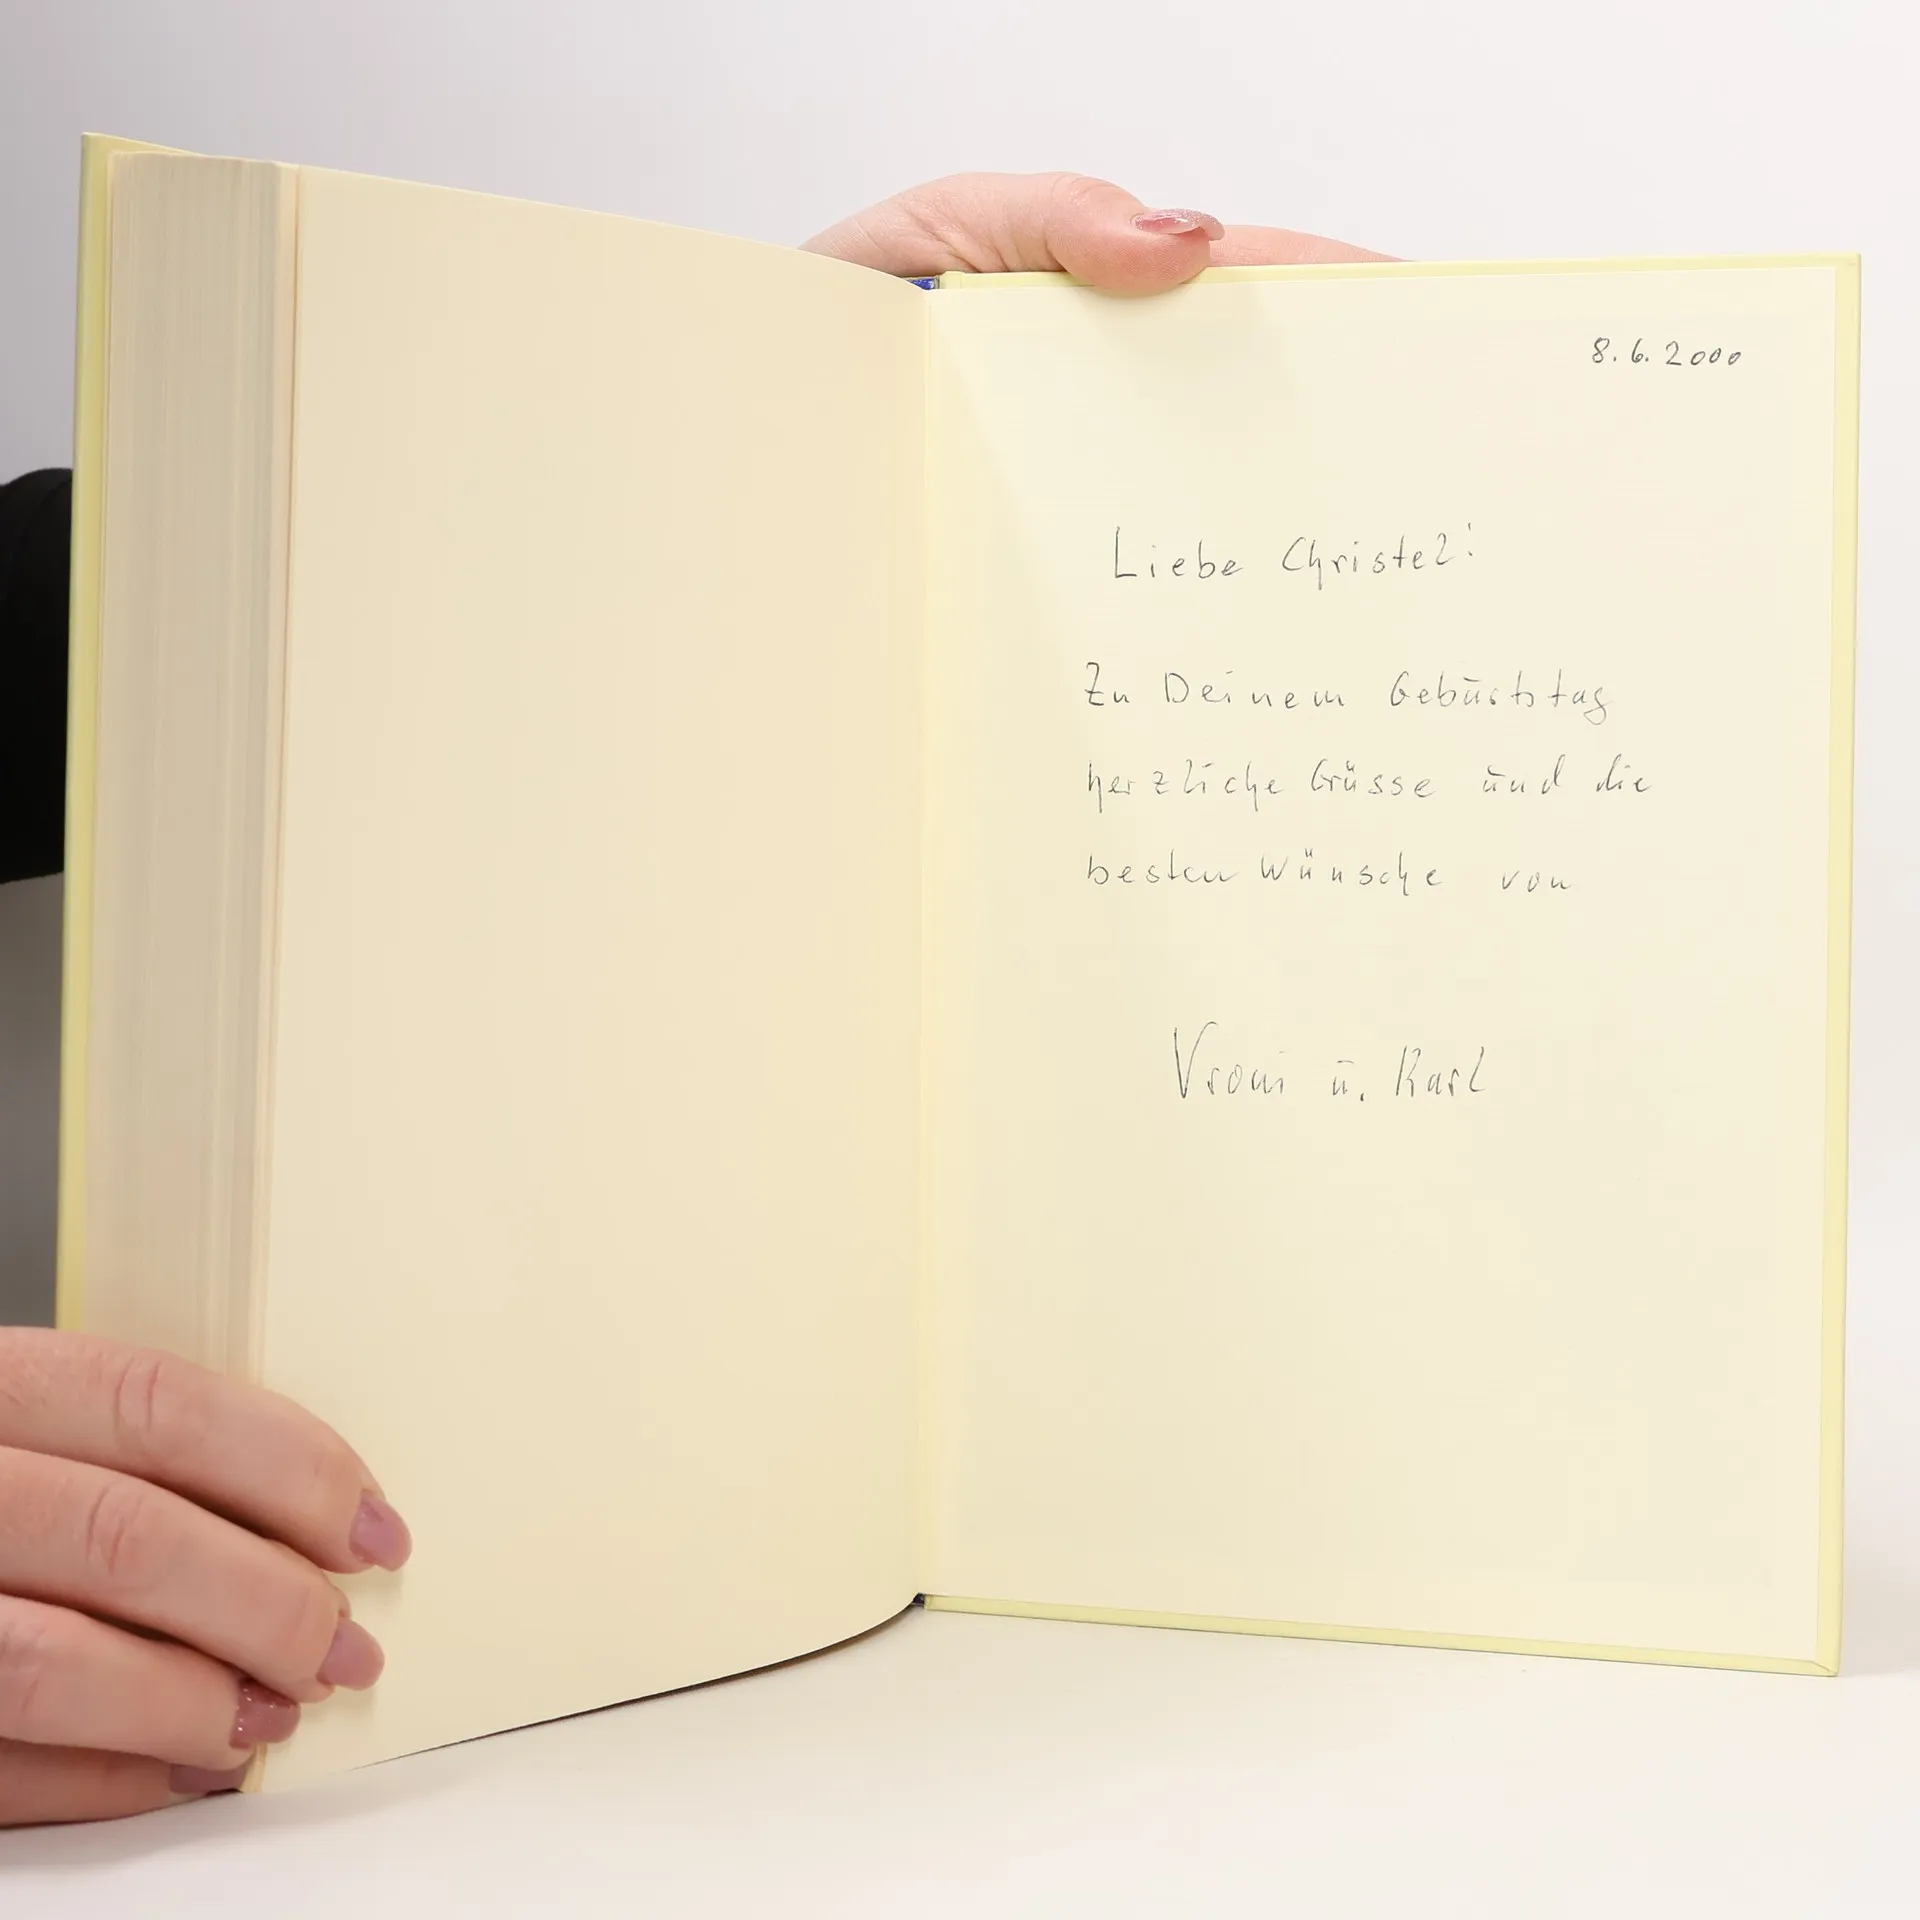 8.6.2000
Liebe Christel!
Zu Deinem Geburtstag
herzliche Grüsse und die
besten Wünsche von
Vroni u. Karl